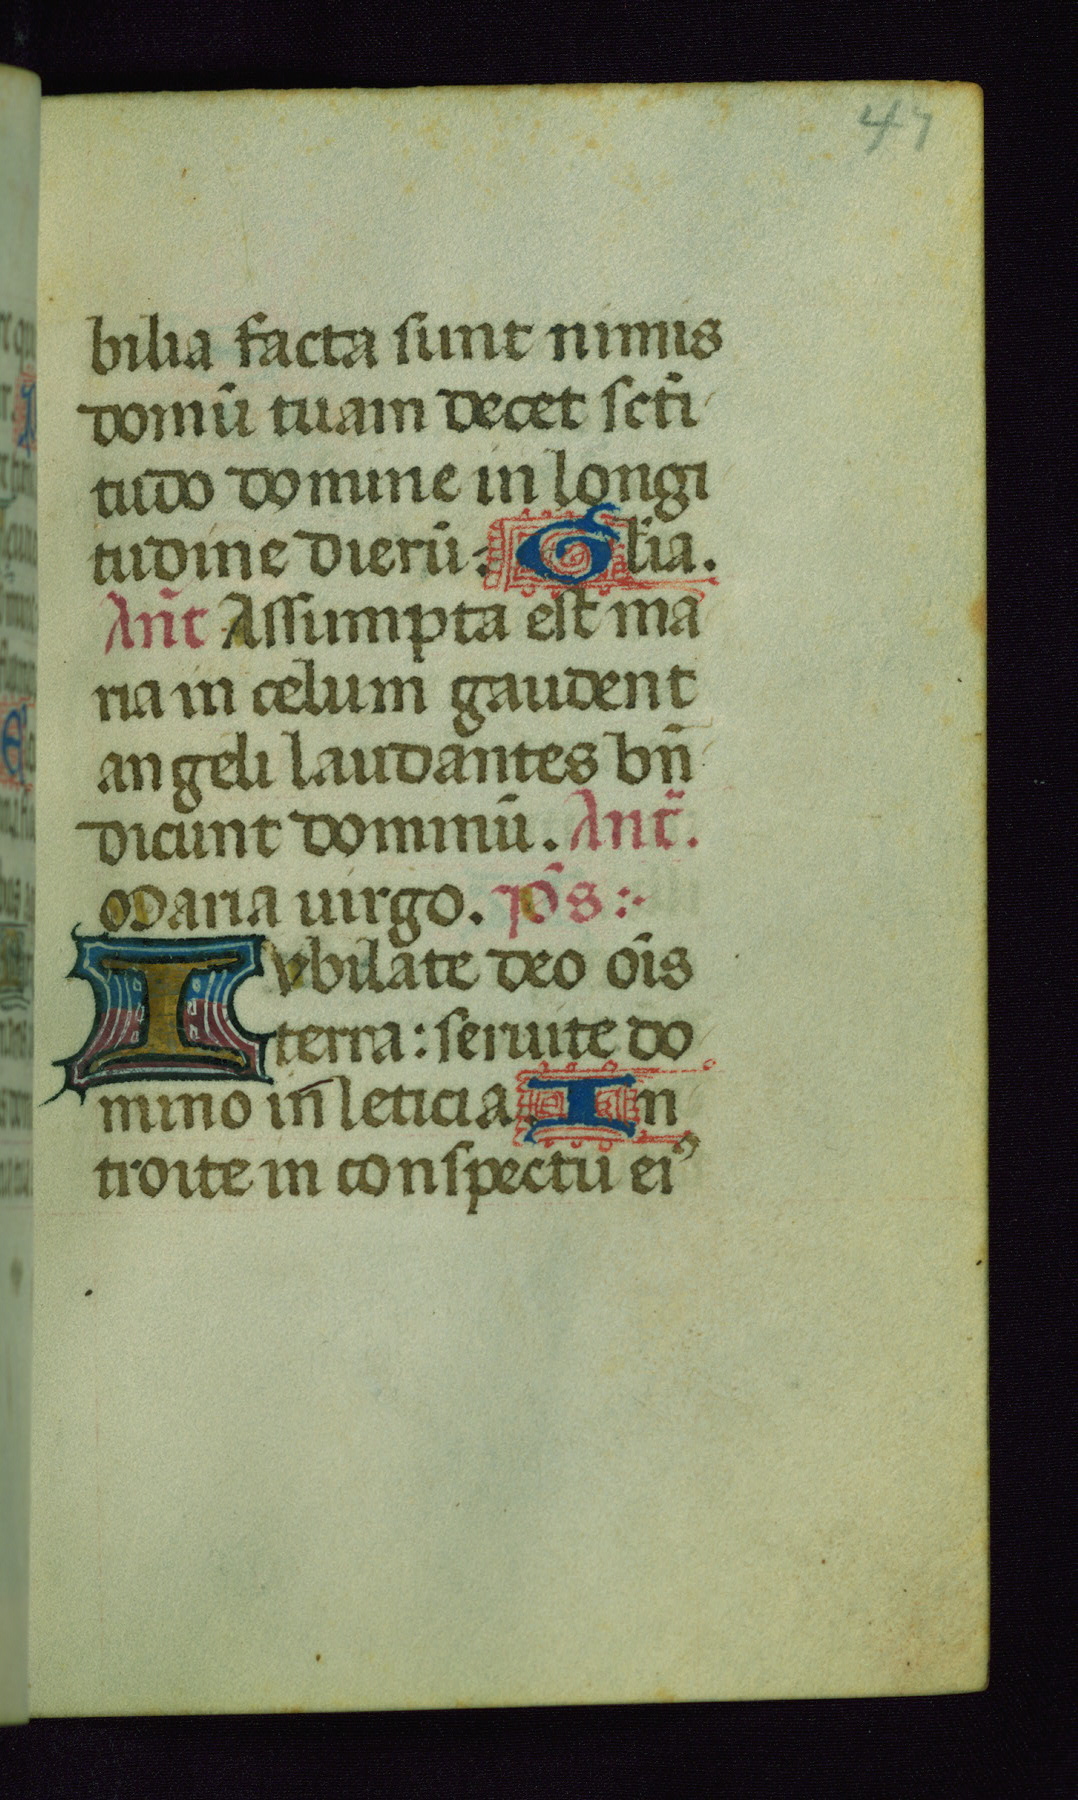 47
bilia facta sunt nimis
domū tuam decet scti̅
tudo domine in longi
tudine dierū: Glīa.
An̄t Assumpta est ma
ria in celum gaudent
angeli laudantes bn̄
dicunt dominū. An̄t.
Maria uirgo. p̄s:
Iubilate deo oīs
terra: seruite do
mino in leticia. In
troite in conspectu eiꝰ